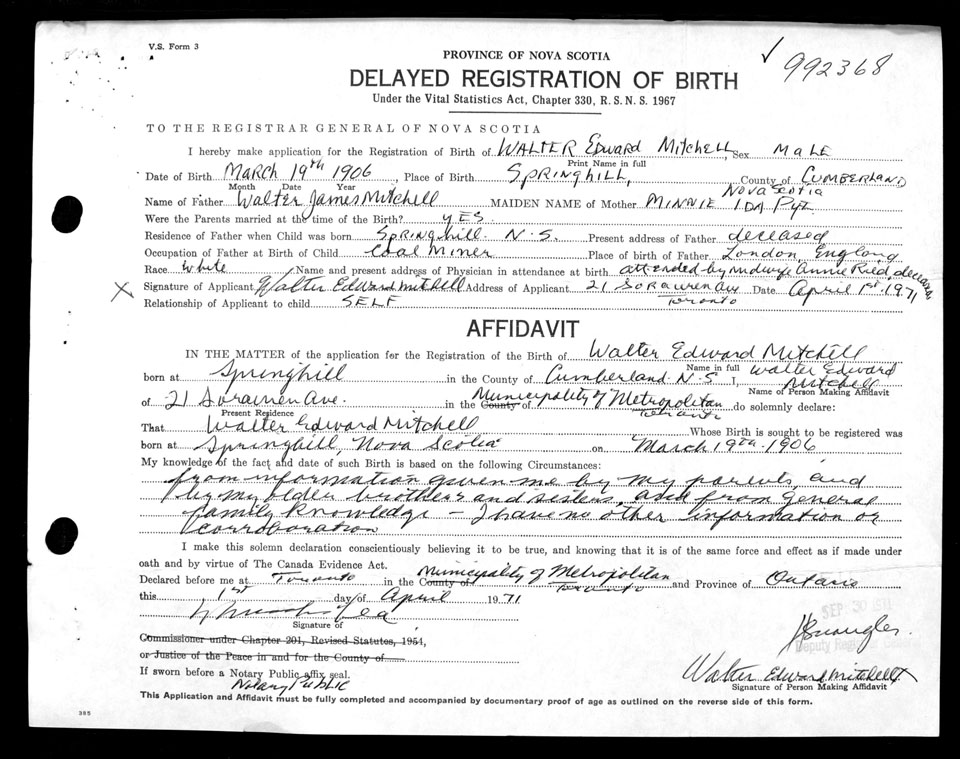 V.S. Form 3
PROVINCE OF NOVA SCOTIA
✓ 992368
DELAYED REGISTRATION OF BIRTH
Under the Vital Statistics Act, Chapter 330, R.S.N.S. 1967
TO THE REGISTRAR GENERAL OF NOVA SCOTIA
I hereby make application for the Registration of Birth of WALTER Edward Mitchell, Sex MaLE
Print Name in full
Date of Birth March 19th 1906, Place of Birth SPRINGHILL, County of CUMBERLAND
Month Date Year
Nova Scotia
Name of Father Walter James Mitchell MAIDEN NAME of Mother MINNIE IDA
Were the Parents married at the time of the Birth? YES.
Residence of Father when Child was born Springhill. N.S. Present address of Father deceased
Occupation of Father at Birth of Child Coal Miner Place of birth of Father London, England
Race White Name and present address of Physician in attendance at birth attended by midwife Annie Reed, deceased
X Signature of Applicant Walter Edward Mitchell Address of Applicant 21 Sorauren Ave Date April 1st. 1971
Toronto
Relationship of Applicant to child SELF
AFFIDAVIT
IN THE MATTER of the application for the Registration of the Birth of Walter Edward Mitchell
Name in full
born at Springhill in the County of Cumberland N.S I, Walter Edward
Mitchell
Name of Person Making Affidavit
of 21 Sorauren Ave. in the County of Municipality of Metropolitan do solemnly declare:
Toronto
Present Residence
That Walter Edward Mitchell Whose Birth is sought to be registered was
born at Springhill, Nova Scotia on March 19th. 1906
My knowledge of the fact and date of such Birth is based on the following Circumstances:
from information given me by my parents, and
by my older brothers and sisters, and from general
family knowledge - I have no other information or
corroboration
I make this solemn declaration conscientiously believing it to be true, and knowing that it is of the same force and effect as if made under
oath and by virtue of The Canada Evidence Act.
Declared before me at Toronto in the County of Municipality of Metropolitan and Province of Ontario
Toronto
this 1st day of April 1971
SEP 30
Signature of
Commissioner under Chapter 201, Revised Statutes, 1954,
or Justice of the Peace in and for the County of
Deputy Registrar
If sworn before a Notary Public affix seal.
Notary Public
Walter Edward Mitchell X
Signature of Person Making Affidavit
This Application and Affidavit must be fully completed and accompanied by documentary proof of age as outlined on the reverse side of this form.
385